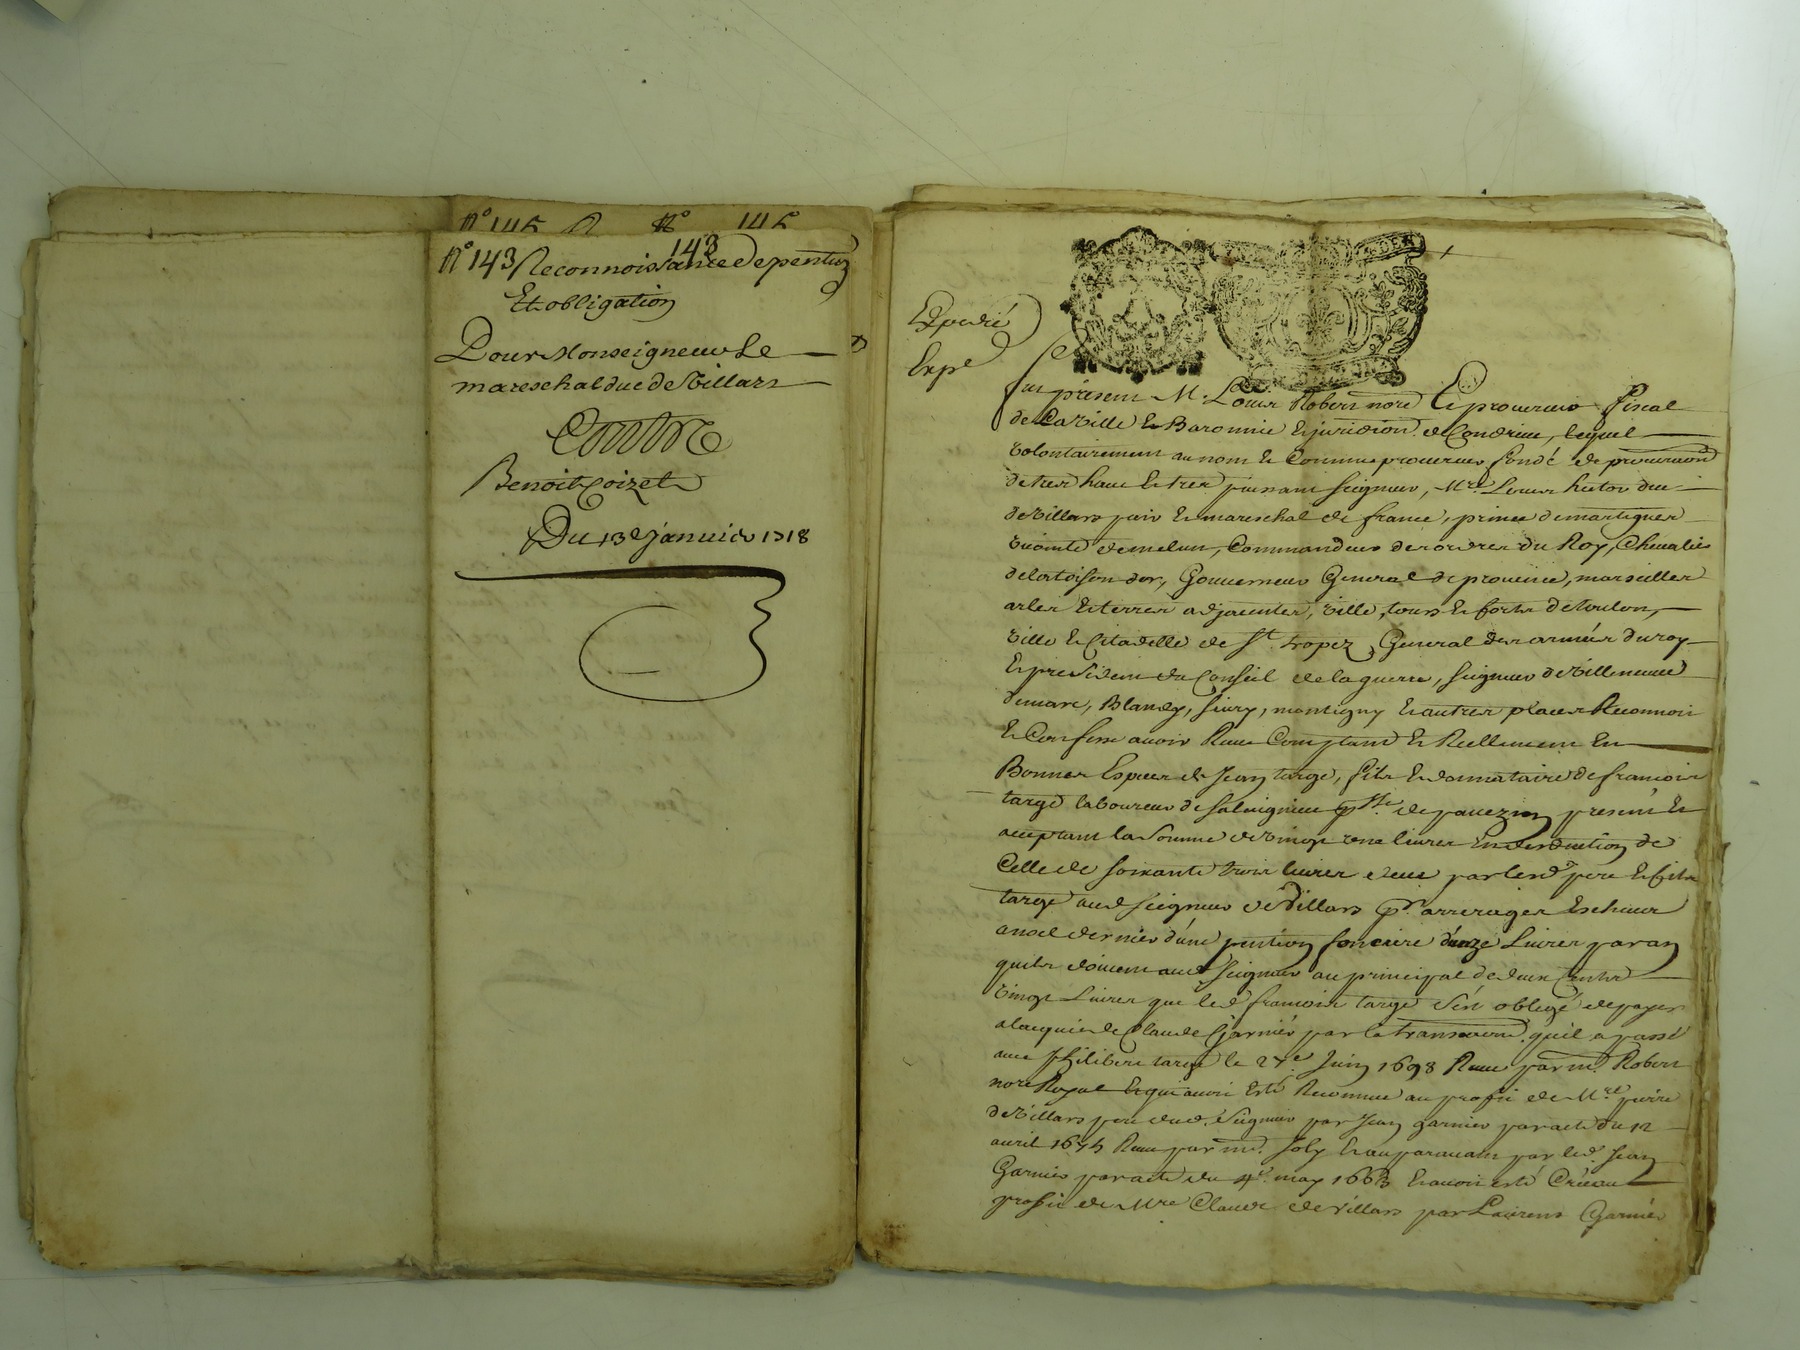 N° 145 N° 145
N° 143 Reconnoissance de pention 143
Et obligation
Pour Monseigneur Le
mareschal duc de Villars
Contre
Benoit Coizet
Du 13e januier 1718
Expedié
Expé
Fut present M.e Louis Robert nore Et procureur fiscal
de La Ville Et Baronnie Et juridiction de Condrieu, lequel
volontairement au nom Et Comme procureur fondé de procuraon
de tres haut Et tres puissant seigneur, Mre Louis hector duc
de Villars pair Et mareschal de france, prince de martigues
vicomte de melun, Commandeur des ordres du Roy, Cheualier
de la toison dor, Gouuerneur General de prouence, marseilles
arles Et terres adjacentes, ville, tours Et forts de toulon,
ville Et Citadelle de St. tropez, General des armées du roy
Et president du Conseil de la guerre, seigneur de Villeneuue
demarc, Blandy, siury, montigny Et autres places Reconnoit
Et Confesse auoir Receu Comptant Et Reellement En
Bonnes Especes de Jean targe, fils Et donnataire de francois
targe laboureur de paroisse de pauezin present Et
acceptant la somme de vingt une liures En deduction de
Celle de soixante trois liures deue par lesd. pere Et fils
targe aud seigneur de Villars pr. arrerages Escheus
de dernier d'une pention fonciere d'onze Liures par an
quils doiuent aud seigneur au principal de deux Cents
vingt Liures que led francois targe s'est obligé de payer
a lacquit de Claude Garnier par la transaction quil a passé
auec philibert targe le 27.e Juin 1698 Receu par m.e Robert
nore Royal Et qui auoit Esté Reconnue au profit de Mre pierre
de Villars pere dud. seigneur par Jean garnier par acte du 12
auril 1675 Receu par me. Joly Et auparauant par led Jean
Garnier par acte du 4e. may 1663 Et auoit esté Créée au
profit de Mre Claude de Villars par Laurens Garnier